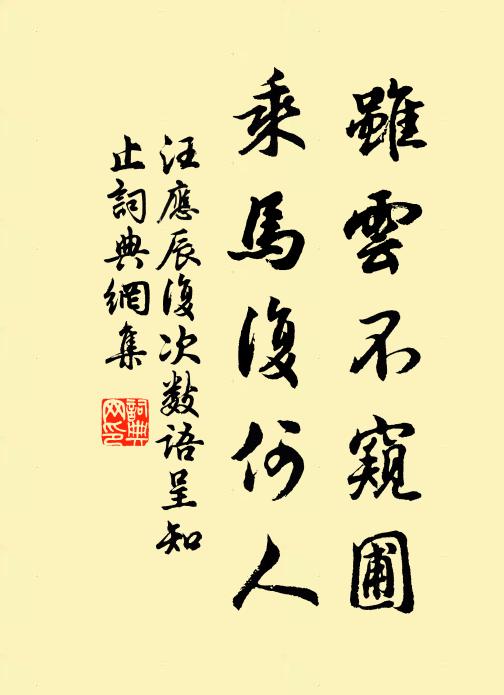 雖雲不窺圃
乘馬復何人
汪應辰復次數語呈知
止詞典網集
詞典
網印